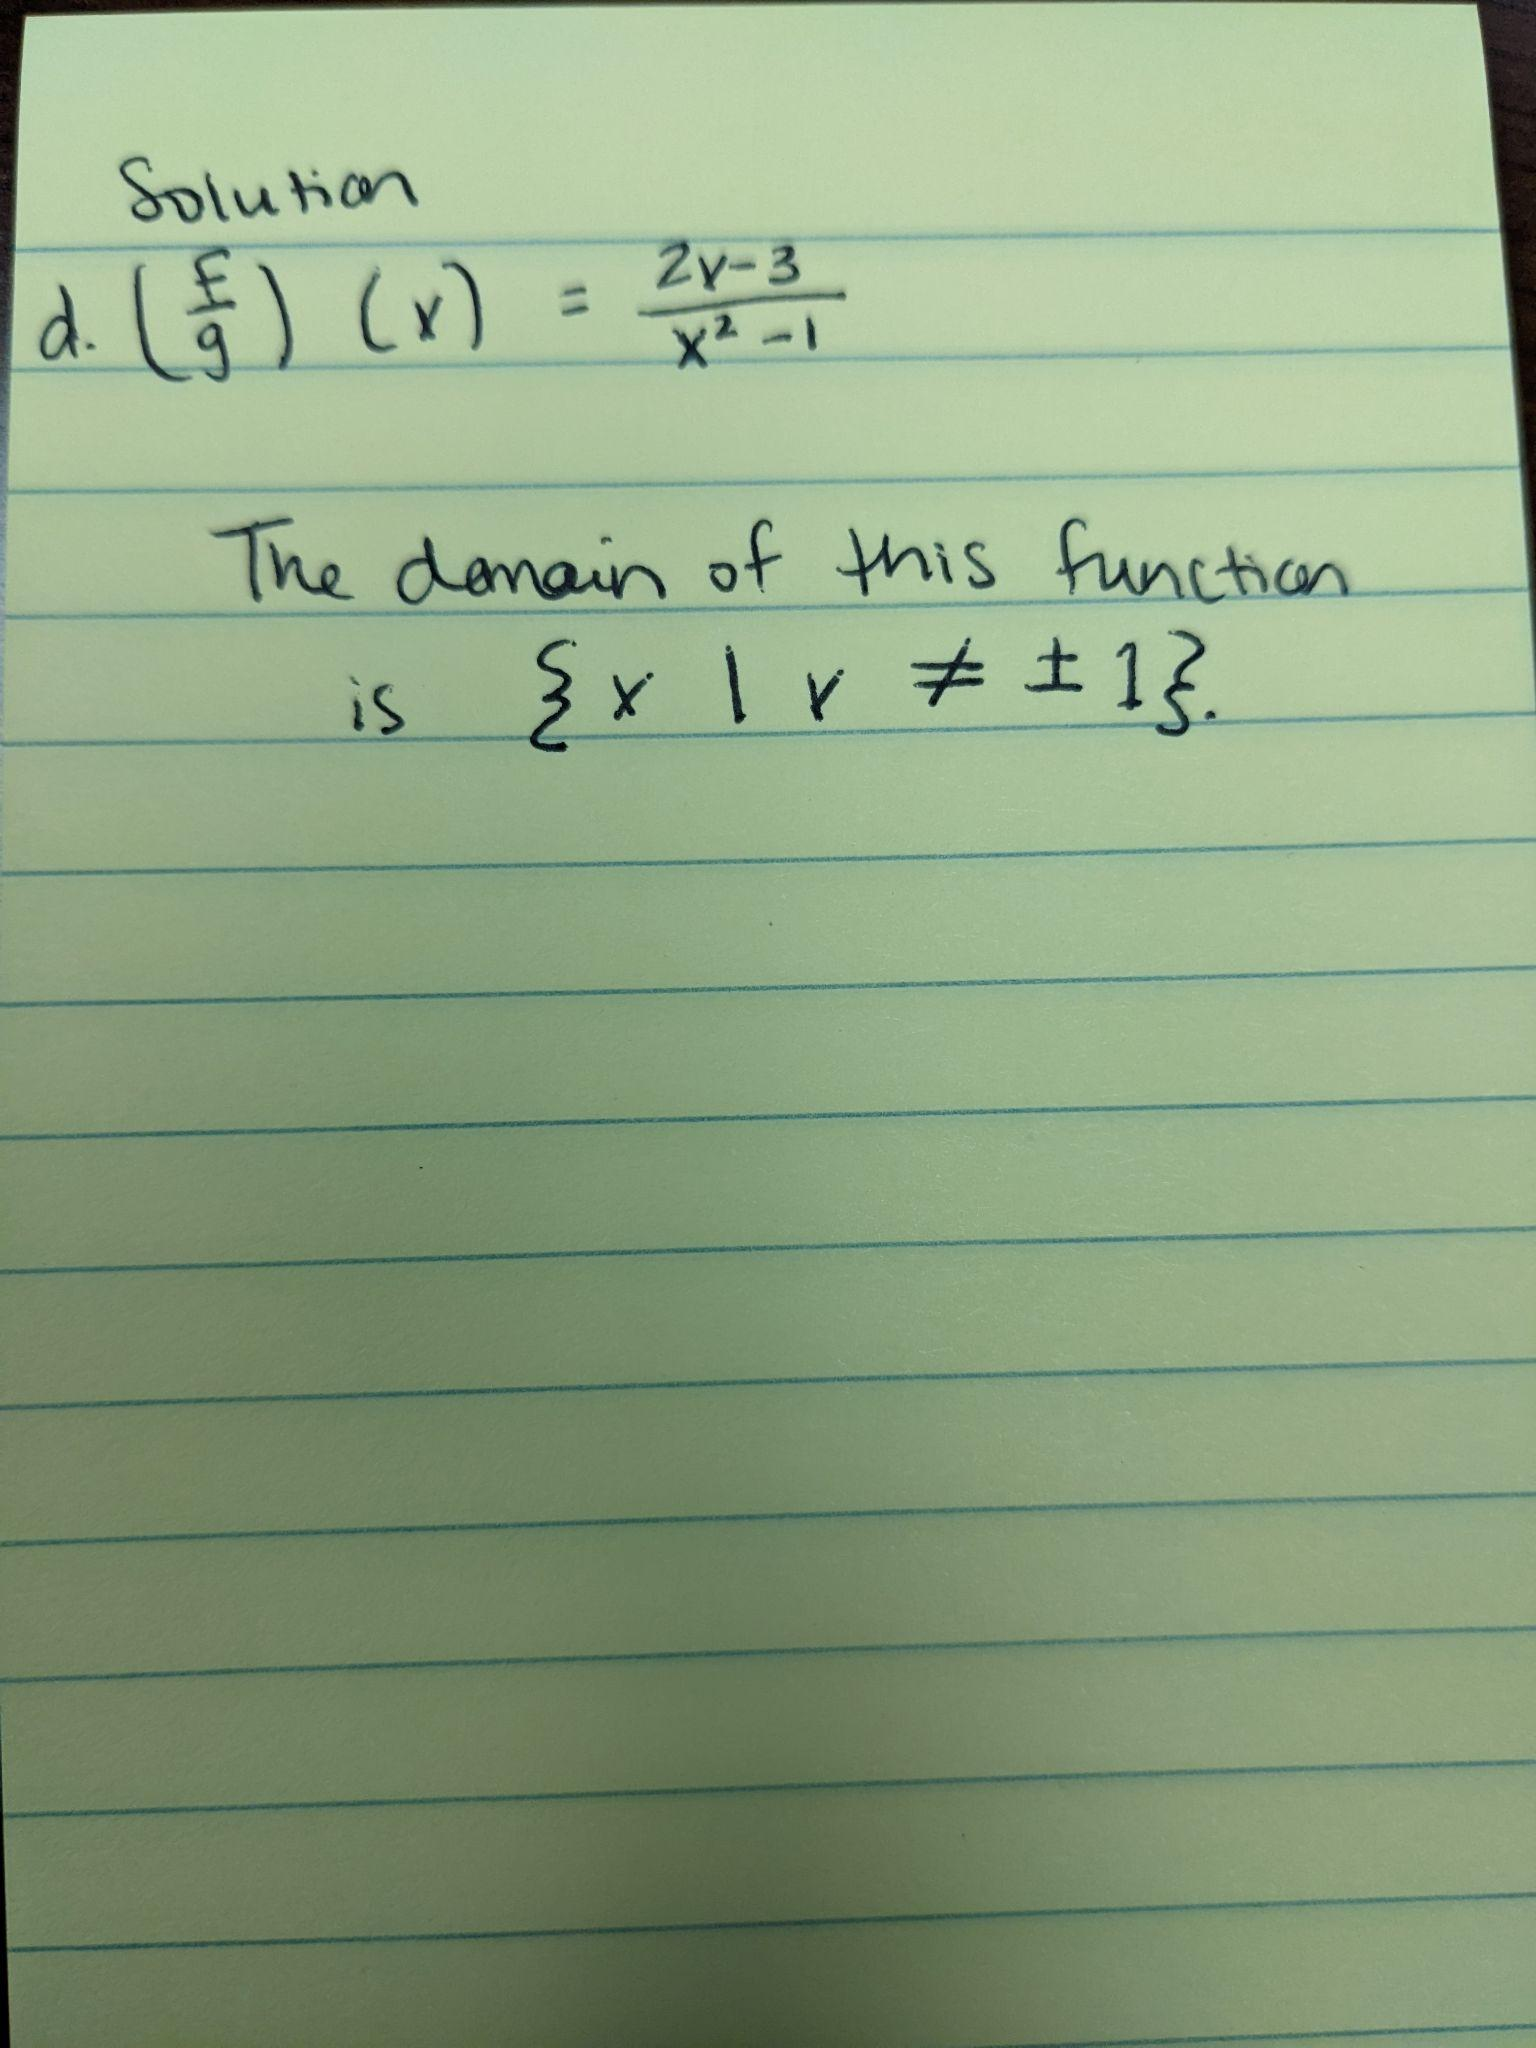 Solution
d. (f/g) (x) = 2x-3/x² -1
The domain of this function
is {x | x ≠ ± 1}.